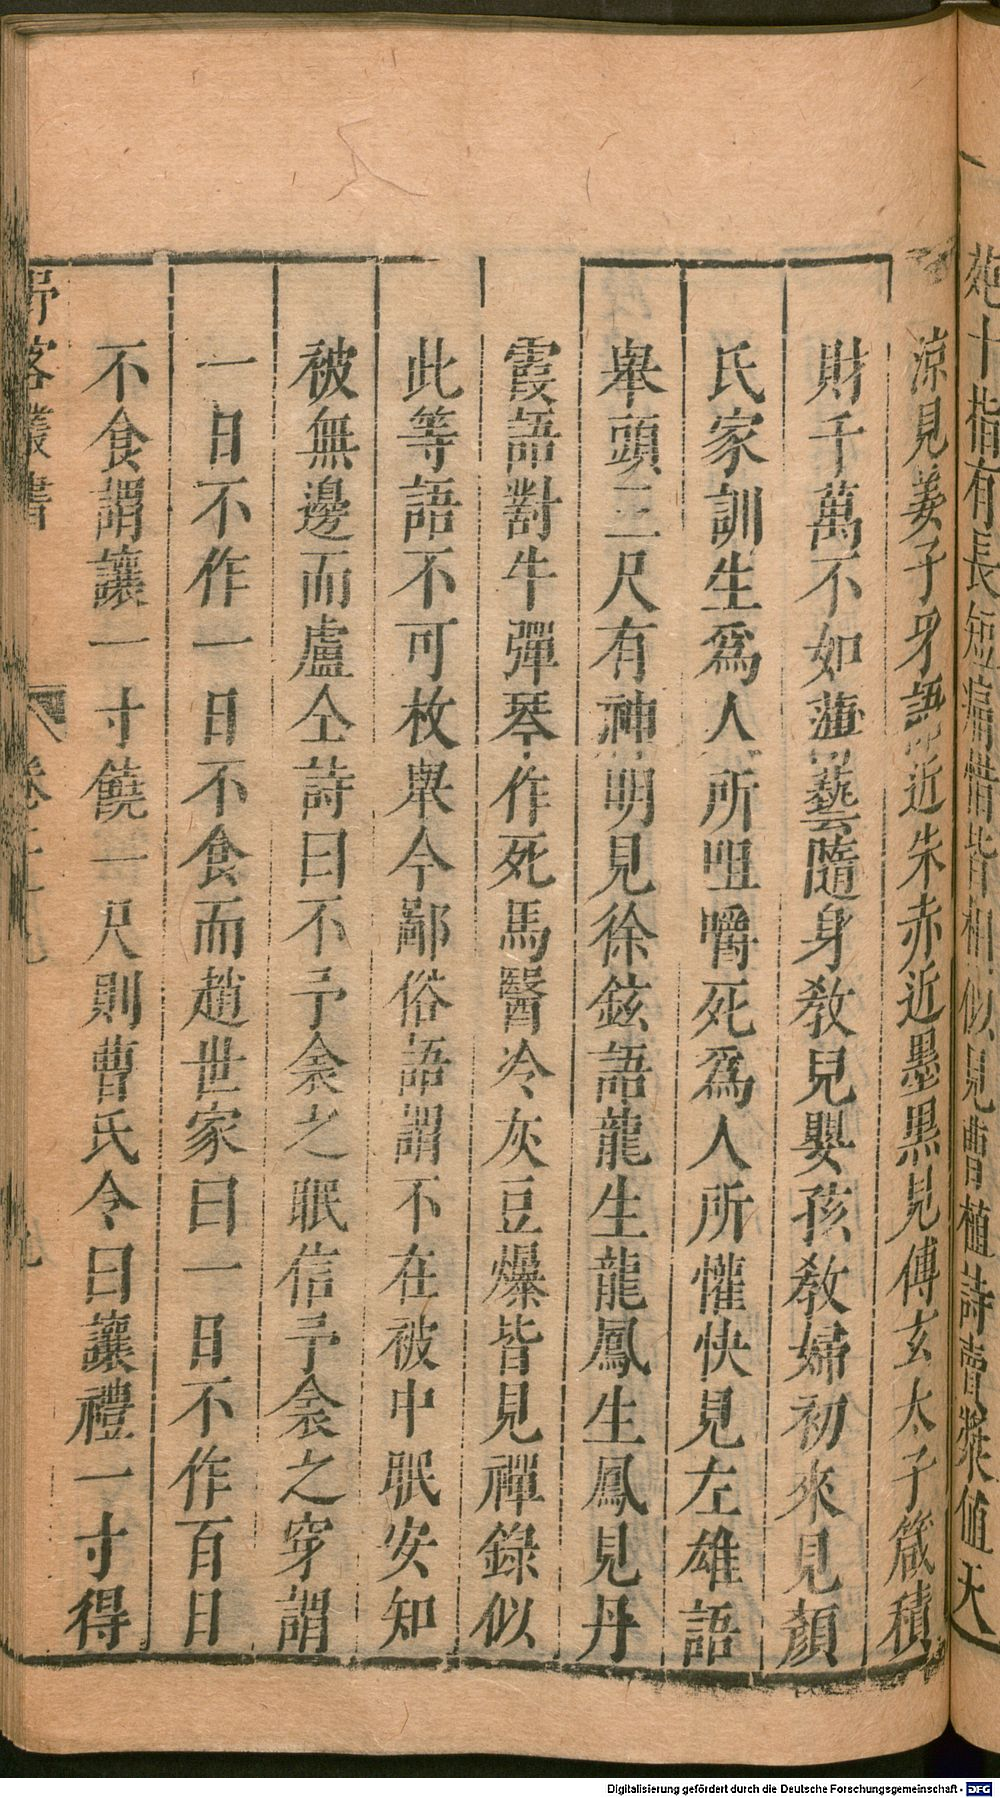 炮十指有長短痛惜皆相似見曹植詩賣漿値天
涼見姜子牙語近朱赤近墨黑見傅玄太子箴積
財千萬不如薄藝隨身敎兒嬰孩敎婦初來見顏
氏家訓生爲人所咀嚼死爲人所懽快見左雄語
舉頭三尺有神明見徐鉉語龍生龍鳳生鳳見丹
霞語對牛彈琴作死馬醫冷灰豆爆皆見禪錄似
此等語不可枚舉今鄙俗語謂不在被中眠安知
被無邊而盧仝詩曰不予衾之眠信予衾之穿謂
一日不作一日不食而趙世家曰一日不作百日
不食謂讓一寸饒一尺則曹氏令曰讓禮一寸得
野客叢書 卷二十九 九
Digitalisierung gefördert durch die Deutsche Forschungsgemeinschaft - DFG